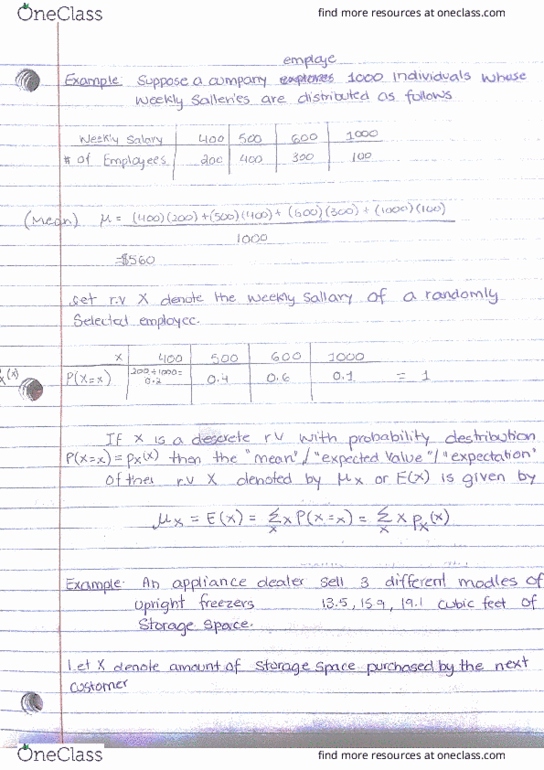 OneClass find more resources at oneclass.com
employe
Example: Suppose a company employes 1000 individuals whose
weekly Salleries are distributed as follows
Weekly Salary 400 500 600 1000
# of Employees 200 400 300 100
(Mean) μ = (400)(200)+(500)(400)+(600)(300)+(1000)(100)
1000
=$560
Let r.v X denote the weekly Sallary of a randomly
Selected employee.
x 400 500 600 1000
(x) P(X=x) 200÷1000= 0.2 0.4 0.6 0.1 = 1
If x is a descrete rv with probability destribution
P(X=x) = px(x) then the "mean"/"expected value"/"expectation"
of the r.v X denoted by μx or E(x) is given by
μx = E(x) = Σx x P(X=x) = Σx x px(x)
Example: An appliance dealer sell 3 different modles of
upright freezers 13.5, 15.9, 19.1 cubic feet of
Storage space.
Let X denote amount of storage space purchased by the next
customer
OneClass find more resources at oneclass.com